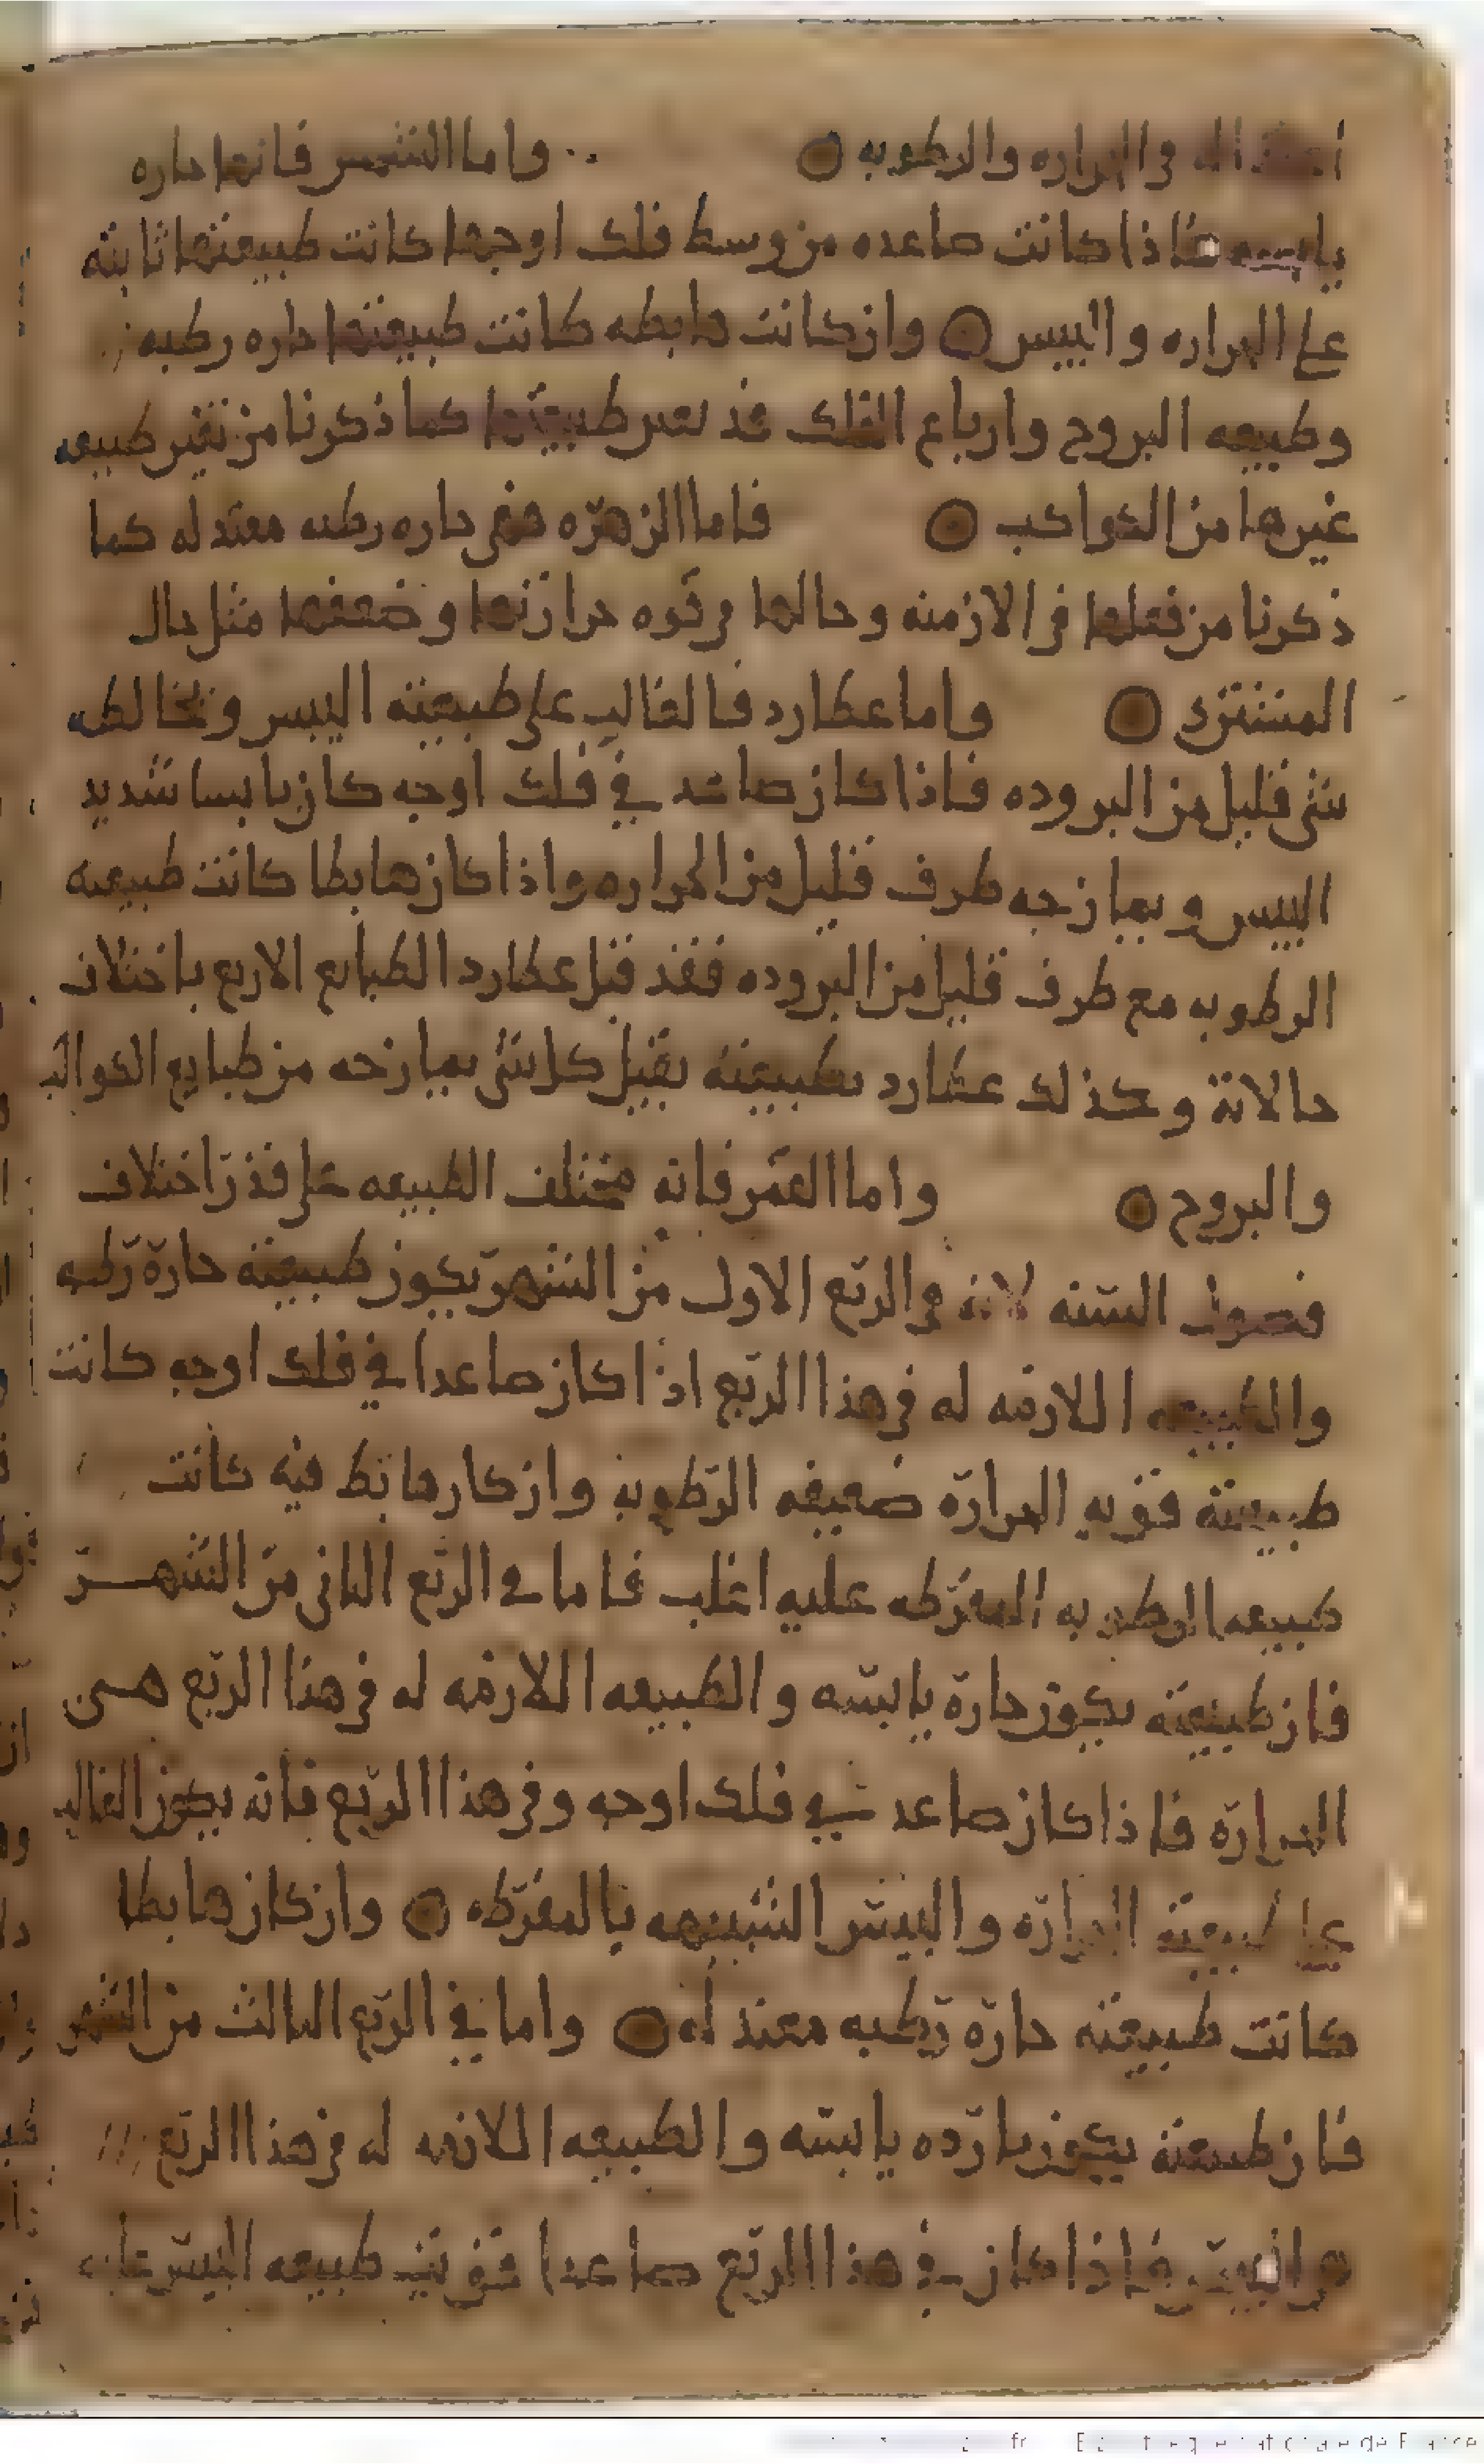 والحراره والرطوبه ○ واما الشمس فانها حاره
يابسه فاذا كانت صاعده من وسط فلك اوجها كانت طبيعتها ثابته
على الحراره واليبس ○ وان كانت هابطه كانت طبيعتها حاره رطبه
وطبيعه البروج وارباع الفلك قد تغير طبيعتها كما ذكرنا من تغير طبيعه
غيرها من الكواكب ○ فاما الزهره فهى حاره رطبه معتدله كما
ذكرنا من فعلها فى الازمنه وحالها فى قوه حرارتها وضعفها مثل حال
المشترى ○ واما عطارد فالغالب على طبيعته اليبس وتخالطه
شى قليل من البروده فاذا كان صاعد في فلك اوجه كان يابسا شديد
اليبس ويمازجه طرف قليل من الحراره واذا كان هابطا كانت طبيعته
الرطوبه مع طرف قليل من البروده فقد قبل عطارد الطبايع الاربع باختلاف
حالاته وكذلك عطارد بطبيعته يقبل كل شى يمازجه من طبايع الكواكب
والبروج ○ واما القمر فانه مختلف الطبيعه على قدر اختلاف
فصول السنه لانه فى الربع الاول من الشهر يكون طبيعته حارة رطبه
والطبيعه اللازمه له فى هذا الربع اذا كان صاعدا في فلك اوجه كانت
طبيعته قويه الحرارة ضعيفه الرطوبه وان كان هابط فيه كانت
طبيعه الرطوبه المفرطه عليه اغلب فاما فى الربع الثانى من الشهر
فان طبيعته يكون حارة يابسه والطبيعه اللازمه له فى هذا الربع هى
الحرارة فاذا كان صاعد في فلك اوجه وفى هذا الربع فانه يكون الغالب
على طبيعته الحرارة واليبس الشبيهه بالمفرطه ○ وان كان هابطا
كانت طبيعته حارة رطبه معتدله ○ واما في الربع الثالث من الشهر
فان طبيعته يكون بارده يابسه والطبيعه اللازمه له فى هذا الربع
هى اليبس فاذا كان في هذا الربع صاعدا قويت طبيعه اليبس عليه